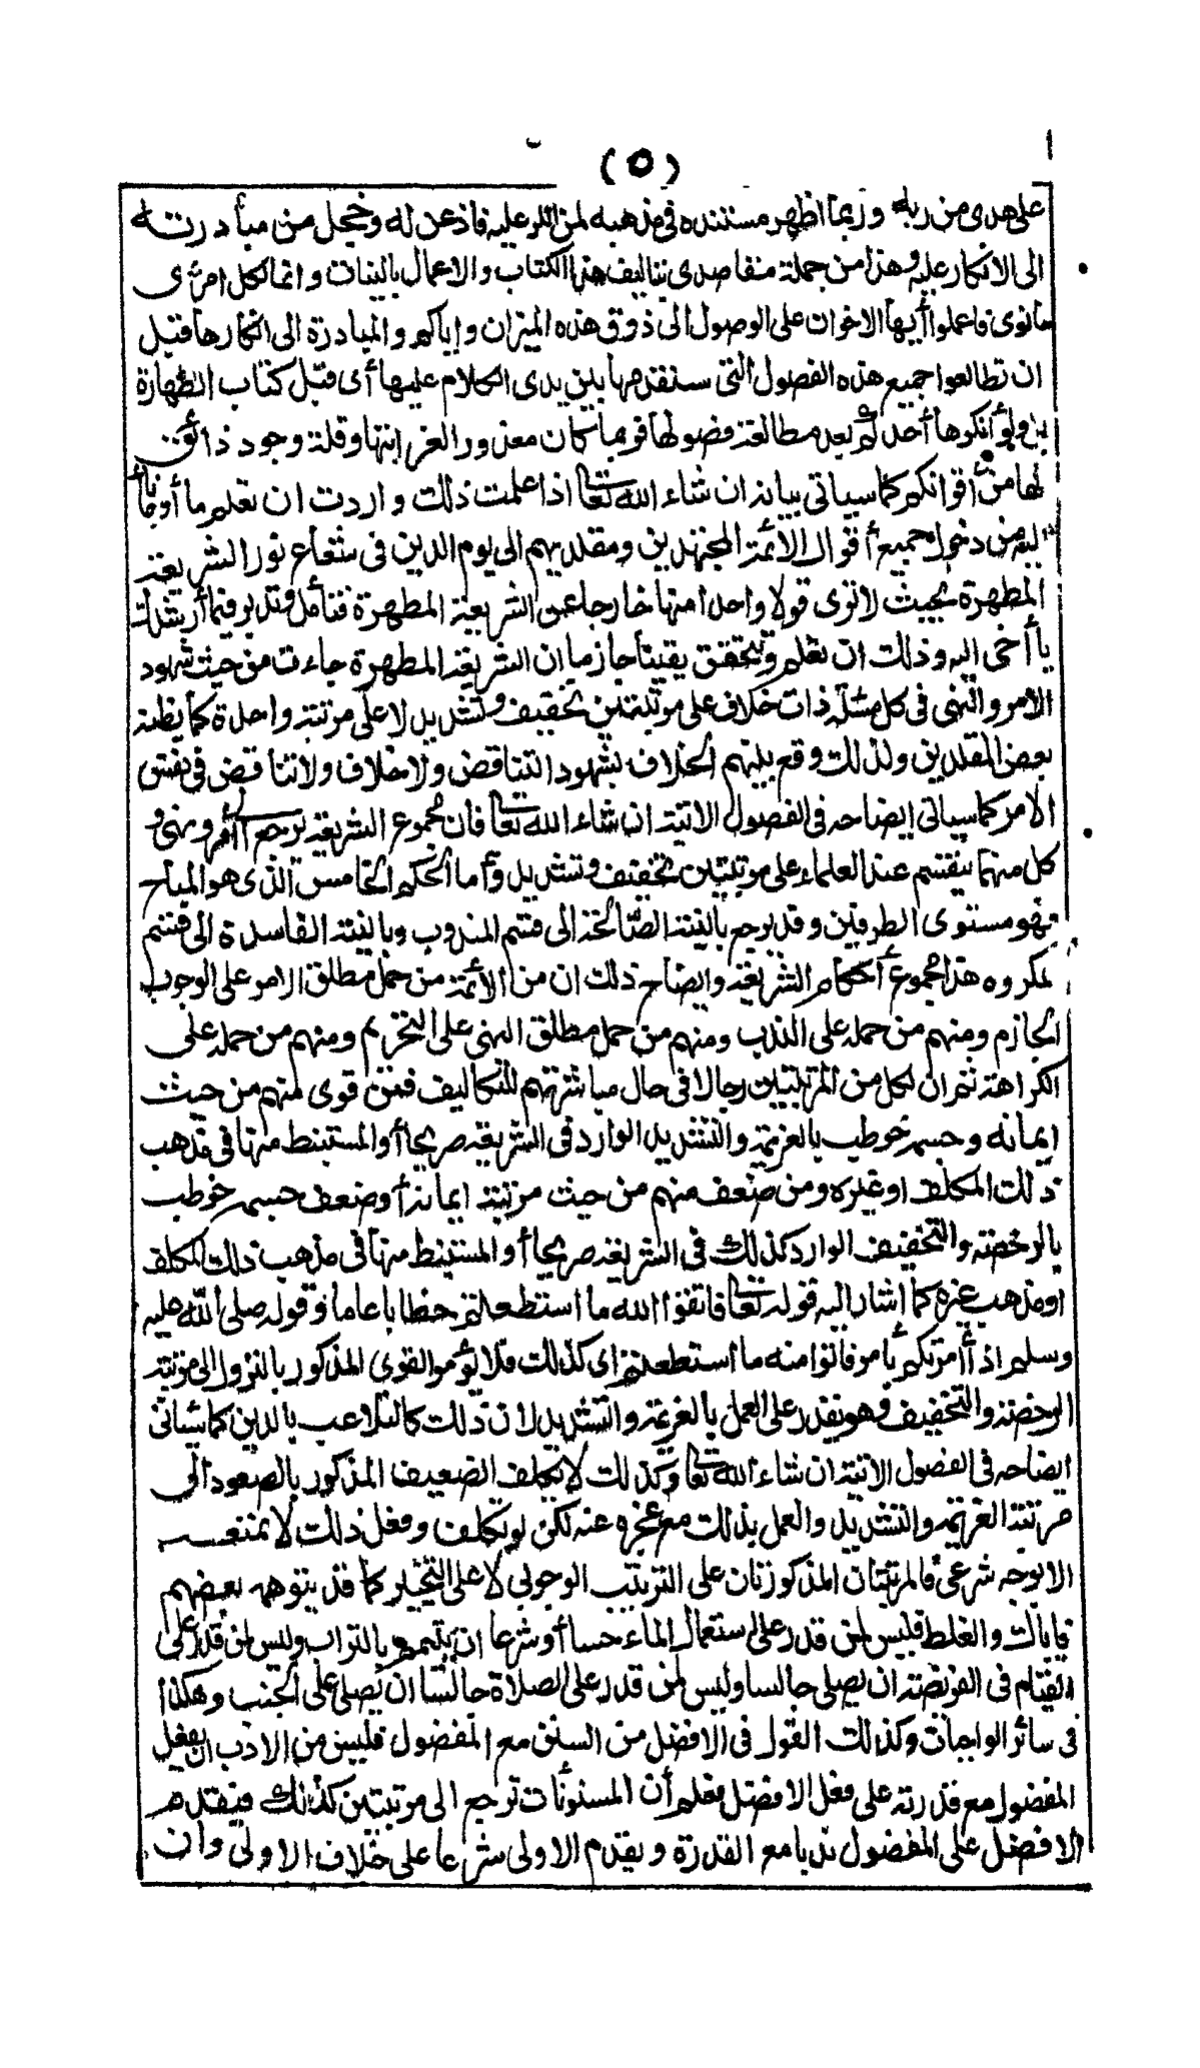 (٥)
على هدى من ربه وربما أظهر مستنده في مذهبه لمن أنكر عليه فاذعن له وخجل من مبادرته
الى الانكار عليه وهذا من جملة مقاصدي بتاليف هذا الكتاب والاعمال بالنيات وانما لكل امرئ
مانوى فاعملوا أيها الاخوان على الوصول الى ذوق هذه الميزان واياكم والمبادرة الى انكارها قبل
ان تطالعوا جميع هذه الفصول التي سنقدمها بين يدى الكلام عليها أى قبل كتاب الطهارة
بل ولو أنكرها أحدكم بعد مطالعة فصولها فربما كان معذورا لغرابتها وقلة وجود ذائق
لها من أقرانكم كما سياتي بيانه ان شاء الله تعالى اذا علمت ذلك واردت ان تعلم ما أومأنا
اليه من دخول جميع أقوال الائمة المجتهدين ومقلديهم الى يوم الدين في شعاع نور الشريعة
المطهرة بحيث لا ترى قولا واحدا منها خارجا عن الشريعة المطهرة فتأمل وتدبر فيما أرشدك
يا أخى اليه وذلك ان تعلم وتتحقق يقينا جازما ان الشريعة المطهرة جاءت من حيث شهود
الامر والنهى في كل مسئلة ذات خلاف على مرتبتين تخفيف وتشديد لا على مرتبة واحدة كما يظنه
بعض المقلدين ولذلك وقع بينهم الخلاف بشهود التناقض ولا خلاف ولا تناقض في نفس
الامر كما سياتى ايضاحه في الفصول الاتية ان شاء الله تعالى فان مجموع الشريعة يرجع الى أمر ونهى و
كل منهما ينقسم عند العلماء على مرتبتين تخفيف وتشديد وأما الحكم الخامس الذى هو المباح
فهو مستوى الطرفين وقد يرجع بالنية الصالحة الى قسم المندوب وبالنية الفاسدة الى قسم
المكروه هذا مجموع أحكام الشريعة وايضاح ذلك ان من الأئمة من حمل مطلق الامر على الوجوب
الجازم ومنهم من حمله على الندب ومنهم من حمل مطلق النهى على التحريم ومنهم من حمله على
الكراهة ثم ان لكل من المرتبتين رجالا في حال مباشرتهم للتكاليف فمن قوى منهم من حيث
ايمانه وجسمه خوطب بالعزيمة والتشديد الوارد في الشريعة صريحا أو المستنبط منها في مذهب
ذلك المكلف او غيره ومن ضعف منهم من حيث مرتبة ايمانه أو ضعف جسمه خوطب
بالرخصة والتخفيف الوارد كذلك في الشريعة صريحا أو المستنبط منها في مذهب ذلك المكلف
او مذهب غيره كما اشار اليه قوله تعالى فاتقوا الله ما استطعتم خطابا عاما وقوله صلى الله عليه
وسلم اذا أمرتكم بأمر فاتوا منه ما استطعتم اى كذلك فلا يؤمر القوى المذكور بالنزول الى مرتبة
الرخصة والتخفيف وهو يقدر على العمل بالعزيمة والتشديد لان ذلك كالتلاعب بالدين كما سياتى
ايضاحه في الفصول الاتية ان شاء الله تعالى وكذلك لا يكلف الضعيف المذكور بالصعود الى
مرتبة العزيمة والتشديد والعمل بذلك مع عجزه عنه لكن لو تكلف وفعل ذلك لا نمنعه
الا بوجه شرعى فالمرتبتان المذكورتان على الترتيب الوجوبى لا على التخيير كما قد يتوهمه بعضهم
فاياك والغلط فليس لمن قدر على استعمال الماء حسا أو شرعا ان يتيمم بالتراب وليس لمن قدر على
القيام في الفريضة ان يصلى جالسا وليس لمن قدر على الصلاة جالسا ان يصلى على الجنب وهكذا
في سائر الواجبات وكذلك القول في الافضل من السنن مع المفضول فليس من الادب ان يفعل
المفضول مع قدرته على فعل الافضل فعلم أن المسنونات ترجع الى مرتبتين كذلك فيقدم
الافضل على المفضول ندبا مع القدرة ويقدم الاولى شرعا على خلاف الاولى وان